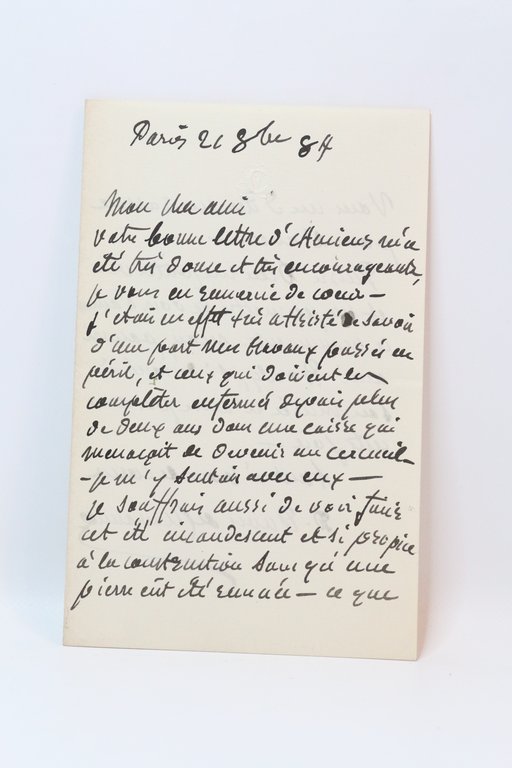 Paris 21 8bre 84
Mon cher ami
votre bonne lettre d'Amiens m'a
été très douce et très encourageante,
je vous en remercie de coeur —
j'étais en effet très attristé de savoir
d'une part mes travaux passés en
péril, et ceux qui doivent les
compléter enfermés depuis plus
de deux ans dans une caisse qui
menaçait de devenir un cercueil —
- je m'y sentais avec eux —
je souffrais aussi de voir finir
cet été incandescent et si propice
à la construction sans qu'une
pierre eût été remuée — ce que